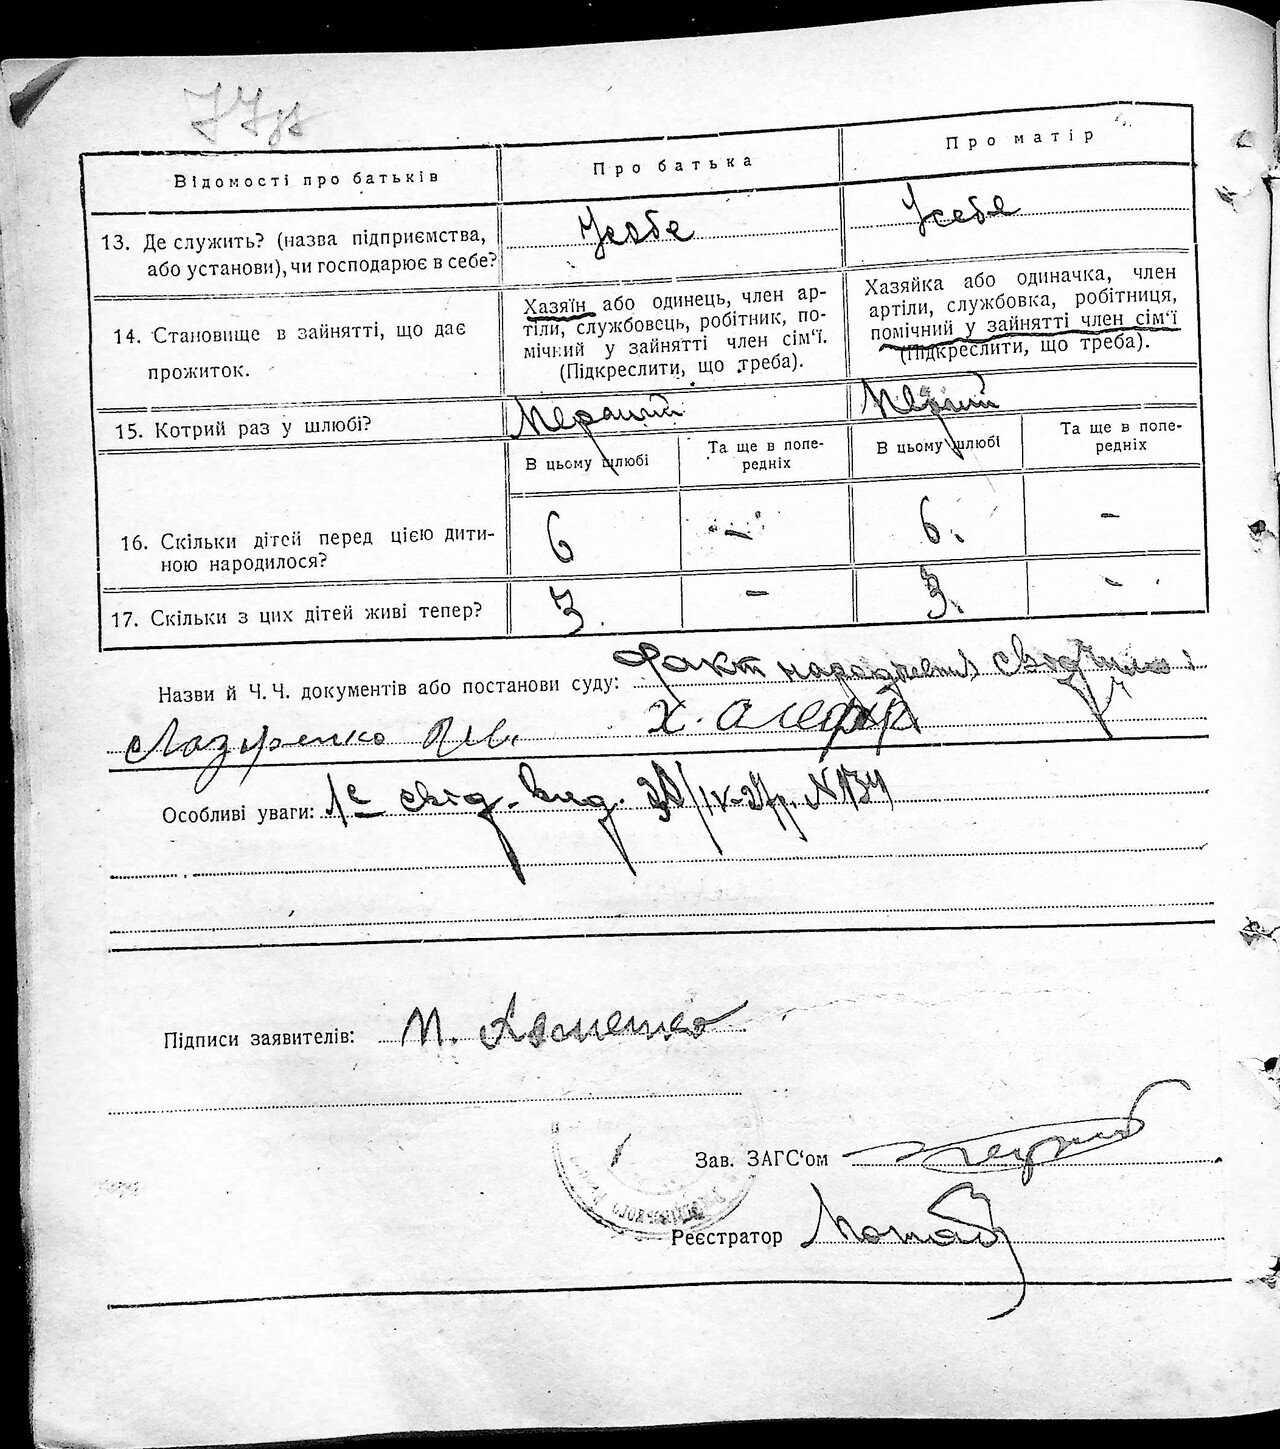 Відомості про батьків
Про батька
Про матір
13. Де служить? (назва підприємства,
або установи), чи господарює в себе?
У себе
У себе
14. Становище в зайнятті, що дає
прожиток.
Хазяїн або одинець, член ар-
тіли, службовець, робітник, по-
мічний у зайнятті член сім'ї.
(Підкреслити, що треба).
Хазяйка або одиначка, член
артіли, службовка, робітниця,
помічний у зайнятті член сім'ї
(Підкреслити, що треба).
15. Котрий раз у шлюбі?
Перший
Перший
В цьому шлюбі
Та ще в попе-
редніх
В цьому шлюбі
Та ще в попе-
редніх
16. Скільки дітей перед цією дити-
ною народилося?
6 - 6. -
17. Скільки з цих дітей живі тепер?
3. - 3. -
Назви й Ч. Ч. документів або постанови суду: Факт народження
Лазаренко Х.
Особливі уваги: свід. вид.
Підписи заявителів:
Зав. ЗАГС'ом
Реєстратор